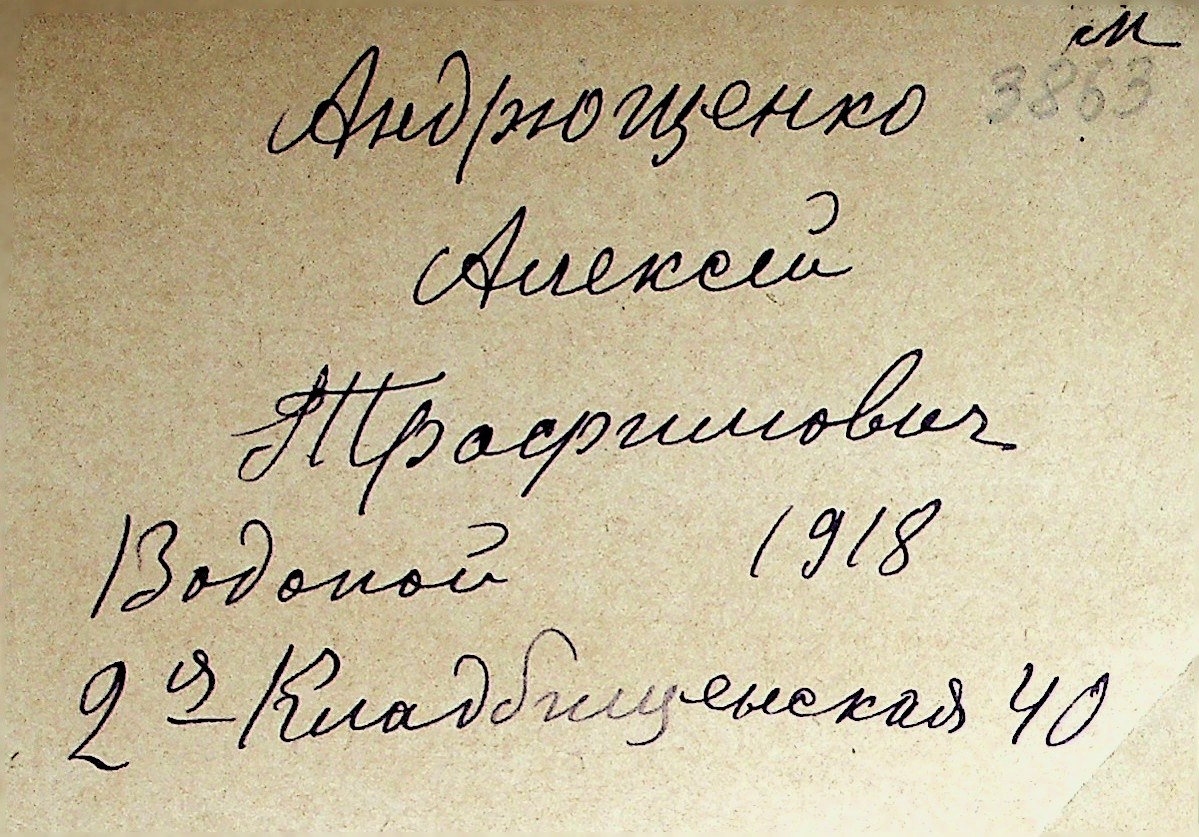 м
3863
Андрющенко
Алексей
Трофимович
Водопой 1918
2я Кладбищенская 40